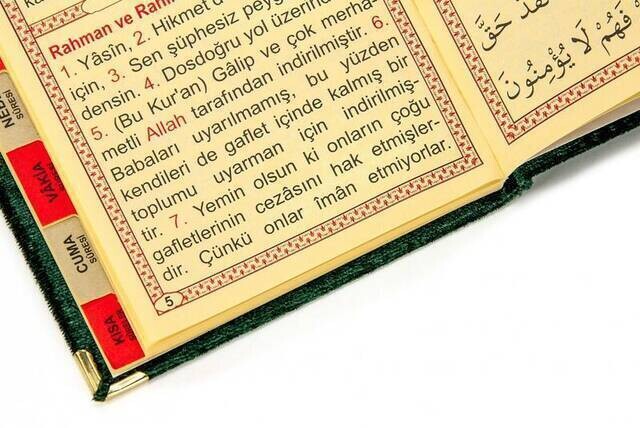 Rahman ve Rahîm
1. Yâsîn, 2. Hikmet d
için, 3. Sen şüphesiz peyg
densin. 4. Dosdoğru yol üzerind
5. (Bu Kur'an) Gâlip ve çok merha-
metli Allah tarafından indirilmiştir. 6.
Babaları uyarılmamış, bu yüzden
kendileri de gaflet içinde kalmış bir
toplumu uyarman için indirilmiş-
tir. 7. Yemin olsun ki onların çoğu
gafletlerinin cezâsını hak etmişler-
dir. Çünkü onlar îmân etmiyorlar.
5
حَقَّ
فَهُمْ لَا يُؤْمِنُونَ
SÛRESİ
VÂKIA
CUMA
SÛRESİ
KISA